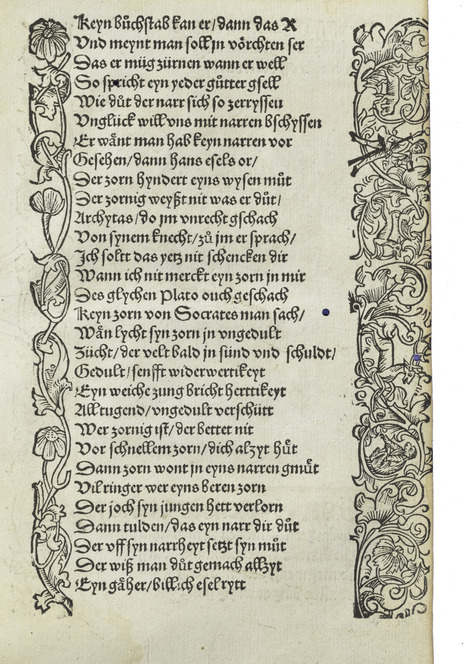 Keyn bůchstab kan er/dann das R
Vnd meynt man soll jn vörchten ser
Das er müg zürnen wann er well
So spricht eyn yeder gůtter gsell
Wie důt der narr sich so zerryssen
Vnglück will vns mit narren bschyssen
Er wänt man hab keyn narren vor
Gesehen/dann hans esels or/
Der zorn hyndert eyns wysen můt
Der zornig weyßt nit was er důt/
Archytas/do jm vnrecht gschach
Von synem knecht/zů jm er sprach/
Jch soltt das yetz nit schencken dir
Wann ich nit merckt eyn zorn in mir
Des glychen Plato ouch geschach
Keyn zorn von Socrates man sach/
Wän lycht syn zorn in vngedult
Zücht/der velt bald in sünd vnd schuldt/
Gedult/senfft widerwertikeyt
Eyn weiche zung bricht herttikeyt
All tugend/vngedult verschütt
Wer zornig ist/der bettet nit
Vor schnellem zorn/dich alzyt hůt
Dann zorn wont jn eyns narren gmůt
Vil ringer wer eyns beren zorn
Der joch syn jungen hett verlorn
Dann tulden/das eyn narr dir důt
Der vff syn narrheyt setzt syn můt
Der wiß man důt gemach allzyt
Eyn gäher/billich esel rytt